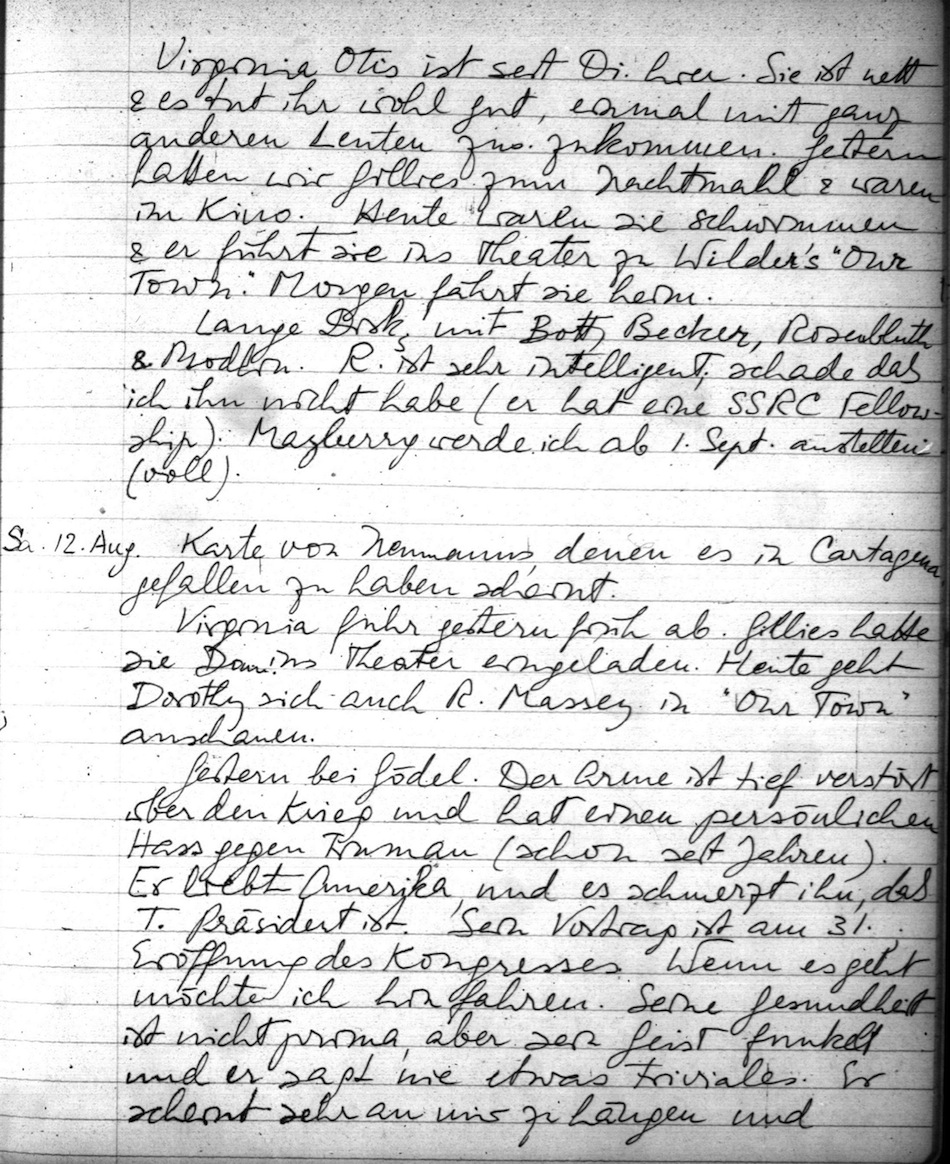 Virginia Otis ist seit Di. hier. Sie ist nett
& es tut ihr wohl gut, einmal mit ganz
anderen Leuten zus. zukommen. Gestern
hatten wir Gillies zum Nachtmahl & waren
im Kino. Heute waren sie schwimmen
& er führt sie ins Theater zu Wilder's "Our
Town". Morgen fährt sie heim.
Lange Disk. mit Bott, Becker, Rosenbluth
& Modlin. R. ist sehr intelligent, schade daß
ich ihn nicht habe (er hat eine SSRC Fellow-
ship). Mayberry werde ich ab 1. Sept. anstellen
(voll).
Sa. 12. Aug. Karte von Neumanns, denen es in Cartagena
gefallen zu haben scheint.
Virginia fuhr gestern früh ab. Gillies hatte
sie Do ins Theater eingeladen. Heute geht
Dorothy sich auch R. Massey in "Our Town"
anschauen.
Gestern bei Gödel. Der Arme ist tief verstört
über den Krieg und hat einen persönlichen
Hass gegen Truman (schon seit Jahren).
Er liebt Amerika, und es schmerzt ihn, daß
T. Präsident ist. Sein Vortrag ist am 31.
Eröffnung des Kongresses. Wenn es geht
möchte ich hinfahren. Seine Gesundheit
ist nicht prima, aber sein Geist funkelt
und er sagt nie etwas Triviales. Er
scheint sehr an mir zu hängen und